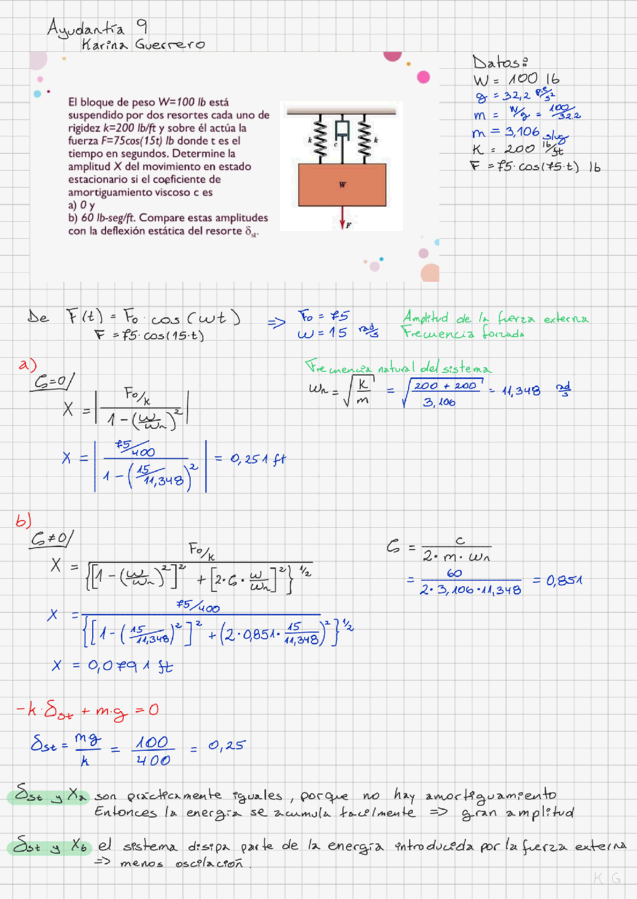 Ayudantía 9
Karina Guerrero
El bloque de peso W=100 lb está
suspendido por dos resortes cada uno de
rigidez k=200 lb/ft y sobre él actúa la
fuerza F=75cos(15t) lb donde t es el
tiempo en segundos. Determine la
amplitud X del movimiento en estado
estacionario si el coeficiente de
amortiguamiento viscoso c es
a) 0 y
b) 60 lb-seg/ft. Compare estas amplitudes
con la deflexión estática del resorte δst.
k
c
k
W
F
Datos:
W = 100 lb
g = 32,2 pie/s²
m = W/g = 100/32.2
m = 3,106 slug
K = 200 lb/ft
F = 75·cos(15·t) lb
De F(t) = F₀·cos(ωt) => F₀ = 75 Amplitud de la fuerza externa
F = 75·cos(15·t) ω = 15 rad/s Frecuencia forzada
a)
ζ=0/
X = |F₀/k / (1-(ω/ωn)²)|
X = |75/400 / (1-(15/11,348)²)| = 0,251 ft
Frecuencia natural del sistema
ωn = √(k/m) = √((200+200)/3,106) = 11,348 rad/s
b)
ζ≠0/
X = F₀/k / {[1-(ω/ωn)²]² + [2·ζ·ω/ωn]²}^1/2
X = 75/400 / {[1-(15/11,348)²]² + (2·0,851·15/11,348)²}^1/2
X = 0,0791 ft
ζ = c / (2·m·ωn)
= 60 / (2·3,106·11,348) = 0,851
-k·δst + m·g = 0
δst = mg/k = 100/400 = 0,25
δst y Xa son prácticamente iguales, porque no hay amortiguamiento
Entonces la energía se acumula facilmente => gran amplitud
δst y Xb el sistema disipa parte de la energía introducida por la fuerza externa
=> menos oscilación.
K.G